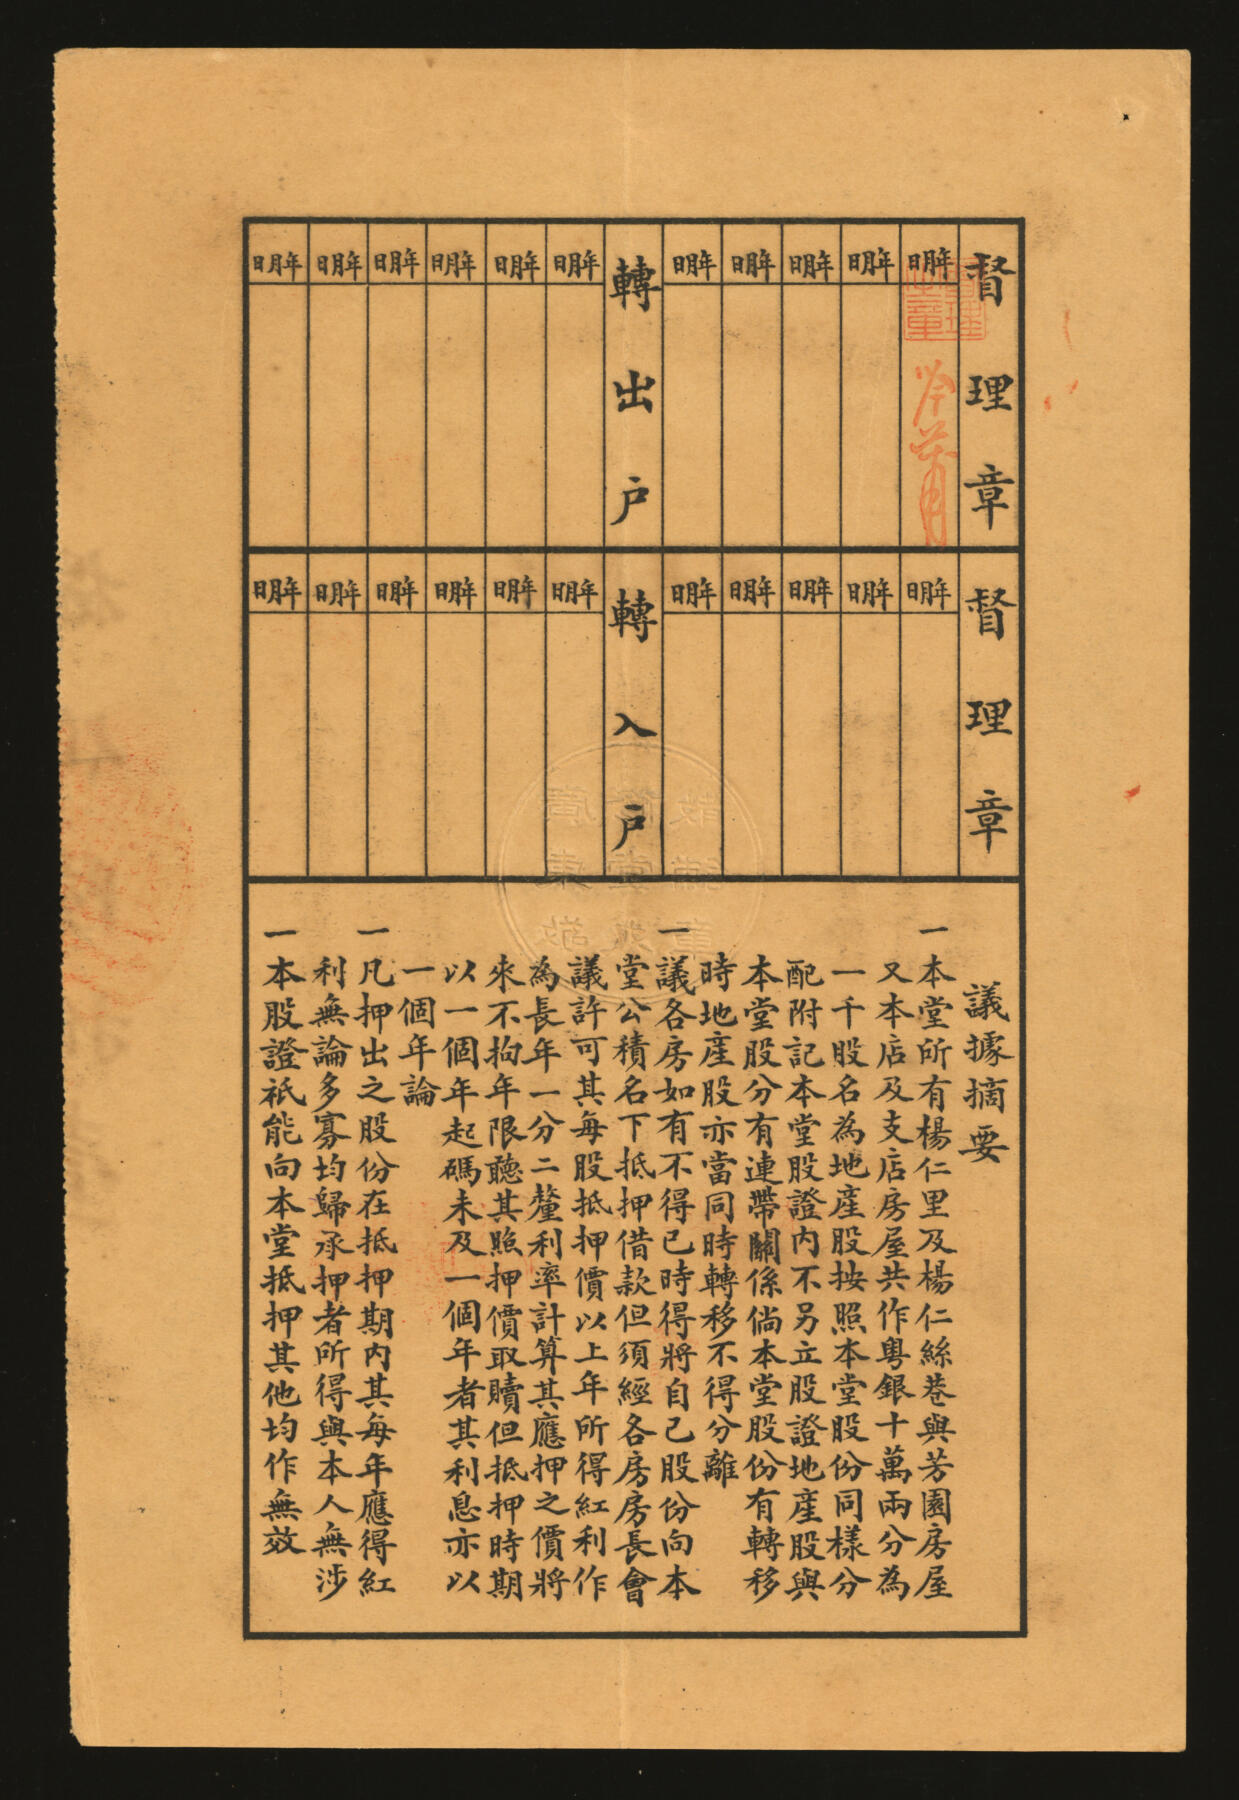 督理章
年月日
年月日
年月日
年月日
年月日
轉出戶
年月日
年月日
年月日
年月日
年月日
年月日
督理章
年月日
年月日
年月日
年月日
年月日
轉入戶
年月日
年月日
年月日
年月日
年月日
年月日
議據摘要
一本堂所有楊仁里及楊仁絲巷與芳園房屋
又本店及支店房屋共作粵銀十萬兩分為
一千股名為地產股按照本堂股份同樣分
配附記本堂股證內不另立股證地產股與
本堂股分有連帶關係倘本堂股份有轉移
時地產股亦當同時轉移不得分離
一議各房如有不得已時得將自己股份向本
堂公積名下抵押借款但須經各房房長會
議許可其每股抵押價以上年所得紅利作
為長年一分二釐利率計算其應押之價將
來不拘年限聽其照押價取贖但抵押時期
以一個年起碼未及一個年者其利息亦以
一個年論
一凡押出之股份在抵押期內其每年應得紅
利無論多寡均歸承押者所得與本人無涉
一本股證祇能向本堂抵押其他均作無效